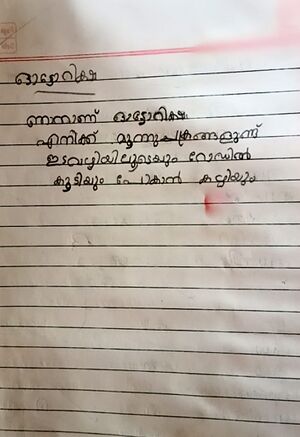 ഓട്ടോറിക്ഷ
ഞാനാണ് ഓട്ടോറിക്ഷ
എനിക്ക് മൂന്നുചക്രങ്ങളുണ്ട്
ഇടവഴിയിലൂടെയും റോഡിൽ
കൂടിയും പോകാൻ കഴിയും